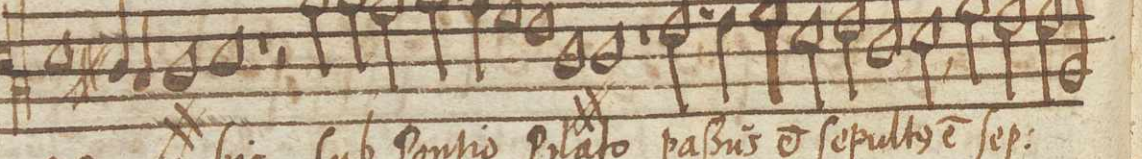 bis sub Pontio Pilato paßus ē sepultꝰ ē sep: